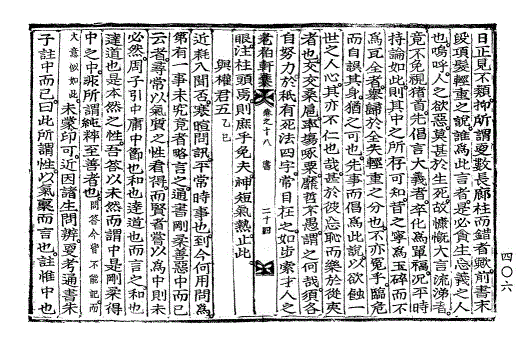 日正見不類抑所謂更數長廊柱而錯者歟前書末
段項髮輕重之說誰爲此言者是必貪生忘義之人
也嗚呼人之欲惡莫甚於生死故慷慨大言流涕者
竟不免視猪首先倡言大義者卒化爲單福況平時
持論如此則其中之所存可知昔之寧爲玉碎而不
爲瓦全者擧歸於全失輕重之分也不亦冤乎臨危
而自誤其身猶之可也先事而倡爲此說以欲蝕一
世之人心其亦不仁也哉甚於彼忘恥而樂於從夾
者也女文桑扈率場啄粟靡哲不愚謂之何哉須各
自努力於秖有死法四字常目在之如步索才人之
老柏軒集 卷之十八 書 二十四
眼注柱頭焉則庶乎免夫神短氣熱止此
與權君五 乙巳
近耗入聞否寒暄問訊不常時事也到今何用問爲
第有一事未究竟者略言之通書剛柔善惡中而已
云者尋常以氣質之性看得而賢者嘗以爲中則未
必然周子引中庸中節也和也達道也而言之和也
達道也是本然之性吾答以未然而謂中是剛柔得
中之中非所謂純粹至善者也 問答今皆不能記而
大意似如此 未蒙印可近因諸生問辨更考通書朱
子註中而已曰此所謂性以氣稟而言也註惟中也
四〇六